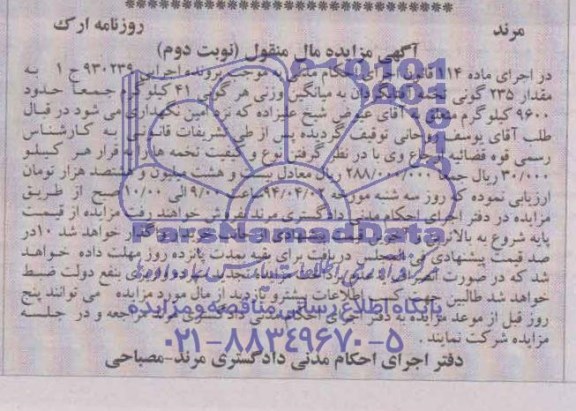 روزنامه ارک
مرند
آگهی مزایده مال منقول (نوبت دوم)
در اجرای ماده ۱۱۴ قانون اجرای احکام مدنی به موجب پرونده اجرایی ۹۳۰۲۳۹ ج ۱ به
مقدار ۲۳۵ گونی تخمه آفتابگردان به میانگین وزنی هر گونی ۴۱ کیلوگرم جمعا حدود
۹۶۰۰ کیلوگرم متعلق به آقای شیخ علیزاده که نزد امین نگهداری می شود در قبال
طلب آقای یوسف روحانی توقیف گردیده پس از طی تشریفات قانونی به کارشناس
رسمی قوه قضائیه ارجاع وی با در نظر گرفتن نوع و کیفیت تخمه ها از قرار هر کیلو
۳۰/۰۰۰ ریال جمعا ۲۸۸/۰۰۰/۰۰۰ ریال معادل بیست و هشت میلیون و هشتصد هزار تومان
ارزیابی نموده که روز سه شنبه مورخه ۹۴/۰۴/ ساعت ۹/۰۰ الی ۱۰/۰۰ صبح از طریق
مزایده در دفتر اجرای احکام مدنی دادگستری مرند بفروش خواهند رفت مزایده از قیمت
پایه شروع به بالاترین قیمت واگذار خواهد شد ۱۰ در
صد قیمت پیشنهادی فی المجلس دریافت برای بقیه بمدت پانزده روز مهلت داده خواهد
شد که در صورت انصراف بنفع دولت ضبط
خواهد شد طالبین جهت کسب اطلاعات بیشتر و بازدید از مال مورد مزایده می توانند پنج
روز قبل از موعد مزایده به دفتر اجرای احکام مدنی دادگستری مرند مراجعه و در جلسه
مزایده شرکت نمایند.
دفتر اجرای احکام مدنی دادگستری مرند-مصباحی
ParsNamadData
پایگاه اطلاع رسانی مناقصه و مزایده
۰۲۱-۸۸۳۴۹۶۷۰-۵